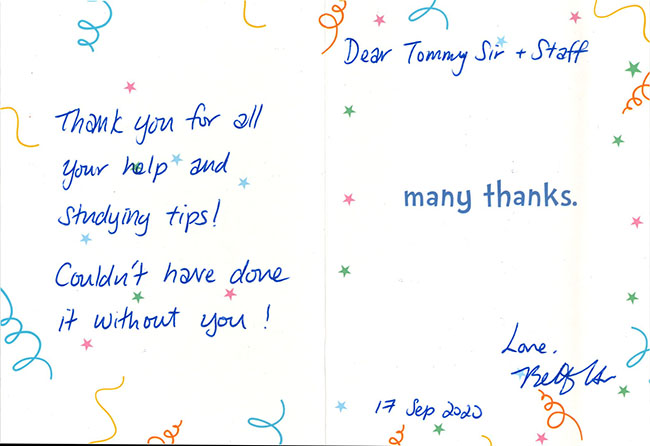 Thank you for all
your help and
studying tips!
Couldn't have done
it without you !
Dear Tommy Sir + Staff
many thanks.
Love,
17 Sep 2020